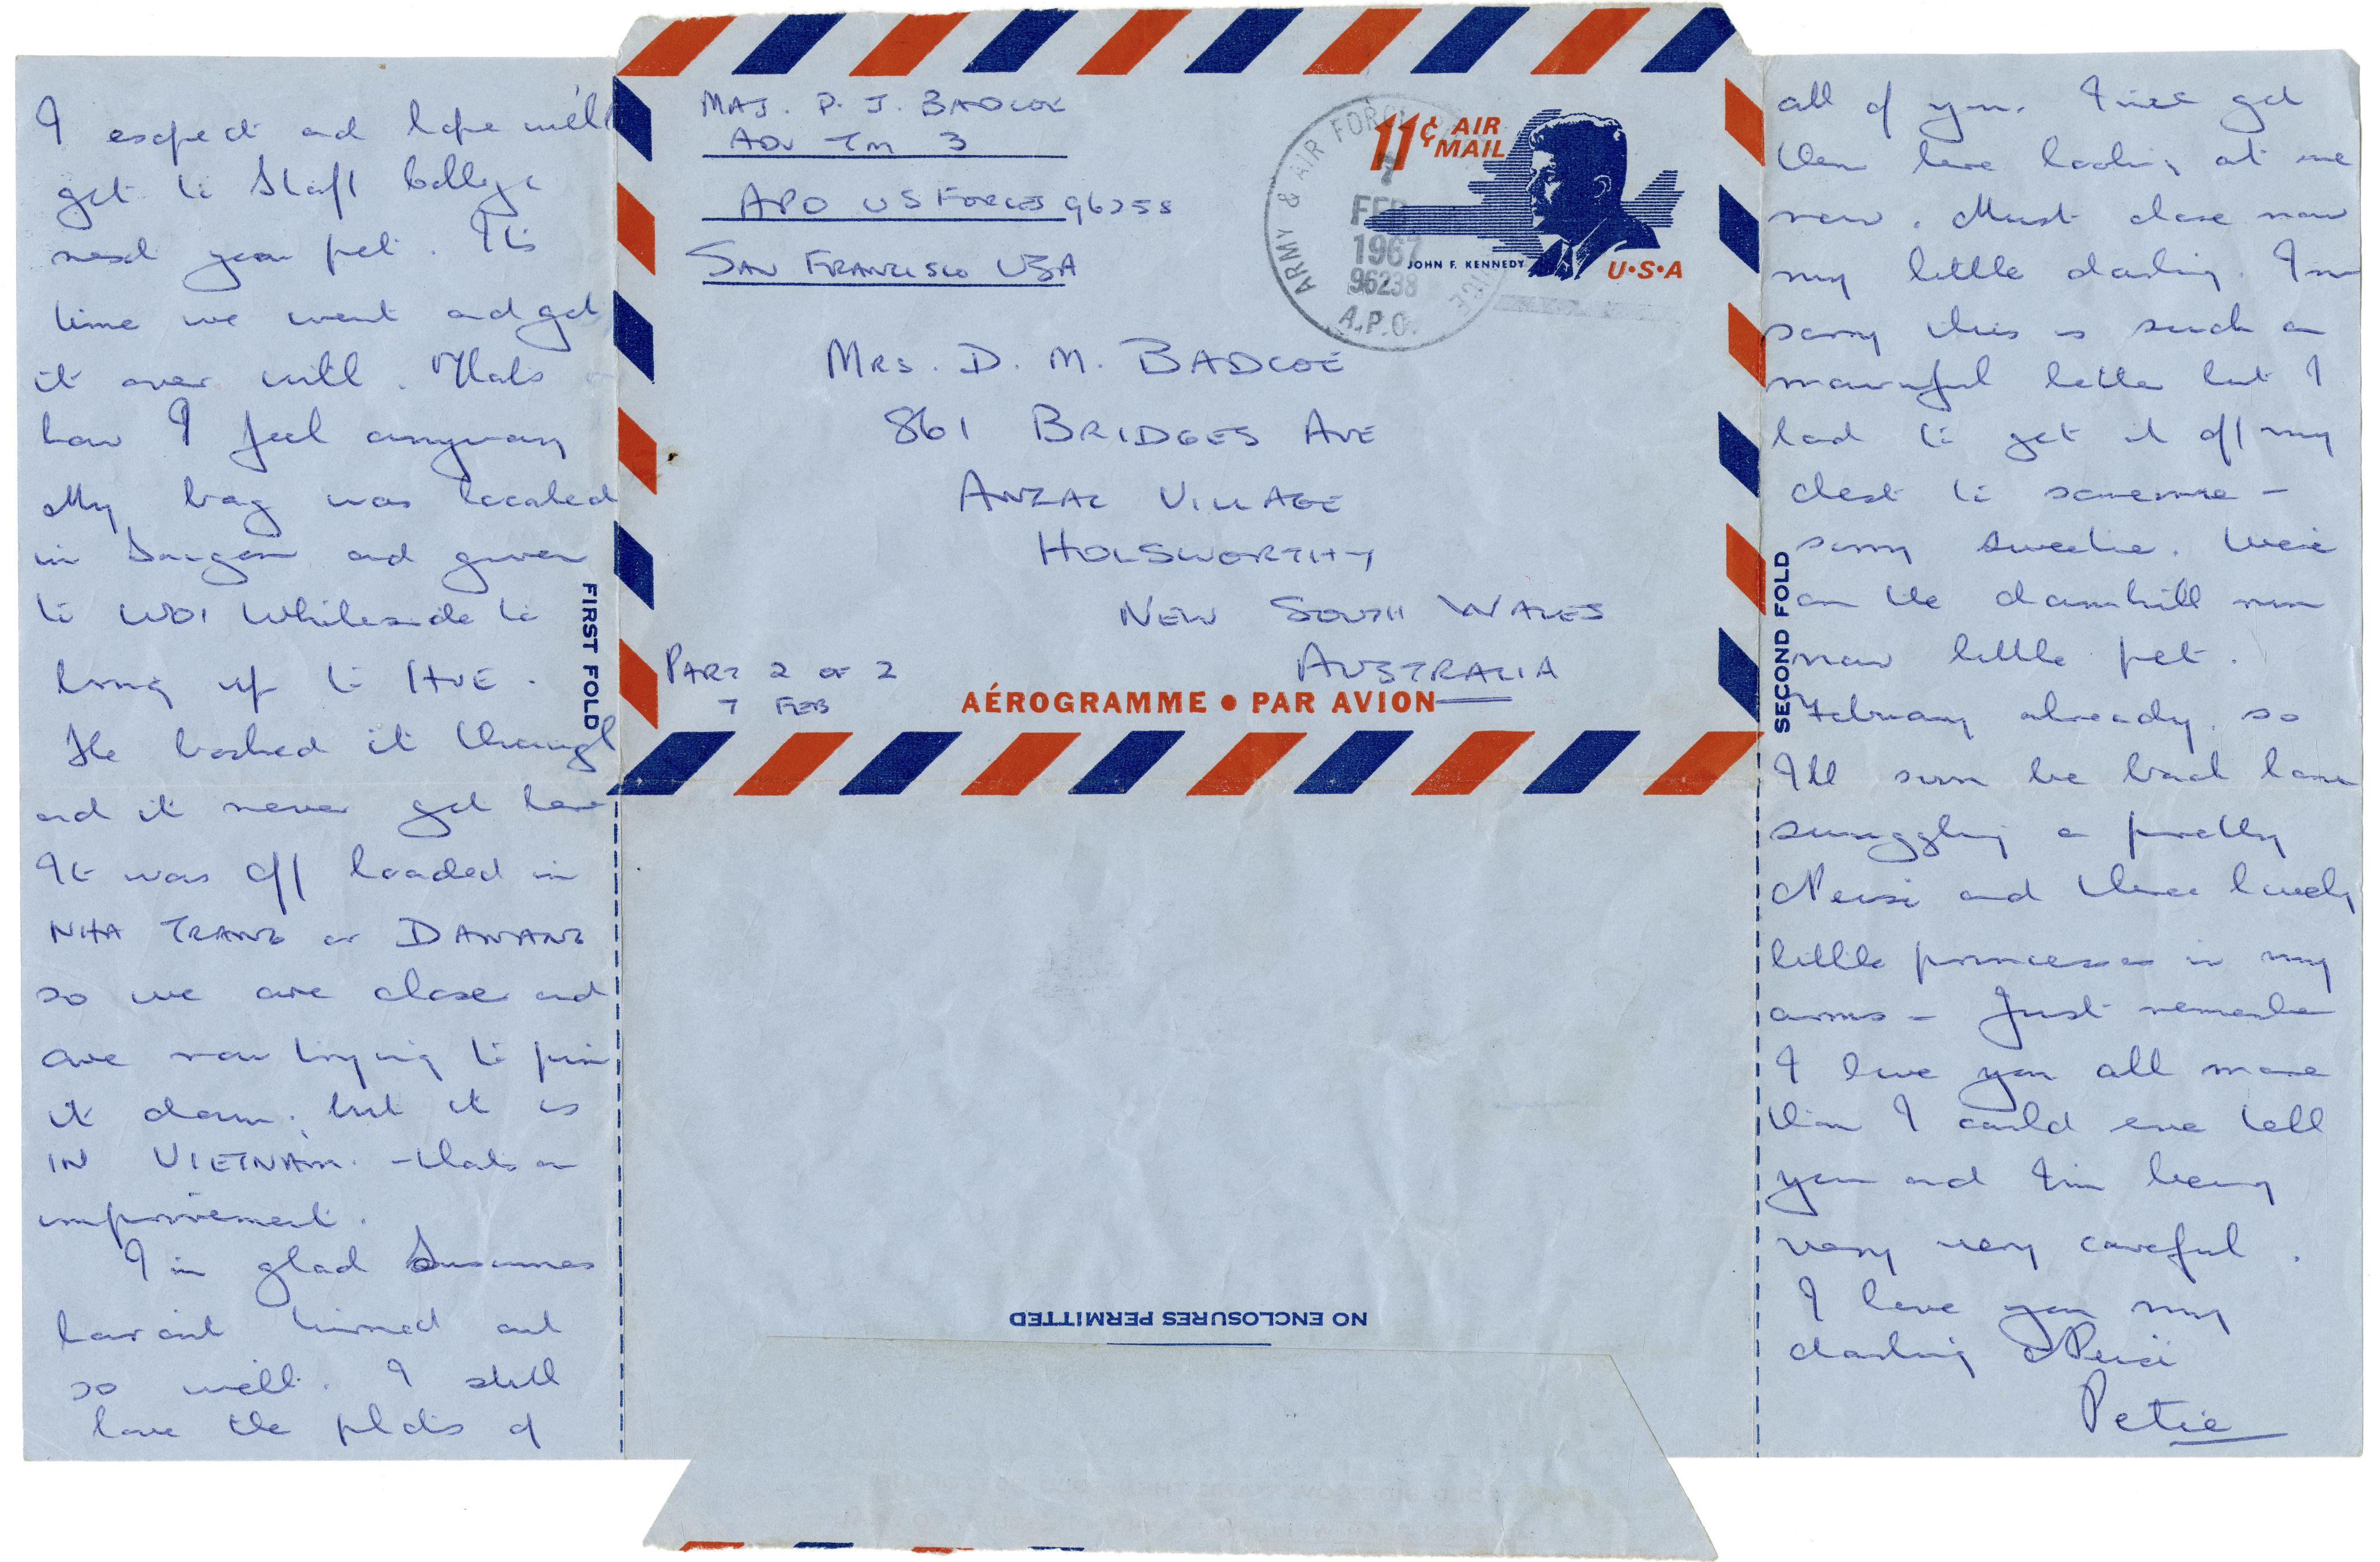 I expect and hope we'll
get to Staff College
next year pet. Its
time we went and got
it over with. Thats
how I feel anyway
My bag was located
in Saigon and given
to WO1 Whiteside to
bring up to HUE.
He booked it through
and it never got here
It was off loaded in
NHA TRANG or DANANG
so we are close and
are now trying to pin
it down, but it is
IN VIETNAM. - thats an
improvement.
I'm glad Susannes
haircut turned out
so well. I still
love the photos of
FIRST FOLD
MAJ. P. J. BADCOE
ADV TM 3
APO US FORCES 96258
SAN FRANCISCO USA
ARMY & AIR FORCE
7
FEB
1967
96238
A.P.O.
11¢ AIR
MAIL
JOHN F. KENNEDY
U·S·A
MRS. D. M. BADCOE
861 BRIDGES AVE
ANZAC VILLAGE
HOLSWORTHY
NEW SOUTH WALES
AUSTRALIA
PART 2 OF 2
7 FEB
AÉROGRAMME • PAR AVION
NO ENCLOSURES PERMITTED
SECOND FOLD
all of you. I've got
them here looking at me
now. Must close now
my little darling. I'm
sorry this is such a
mournful letter but I
had to get it off my
chest to someone -
sorry sweetie. We're
on the downhill run
now little pet.
February already, so
I'll soon be back home
snuggling a pretty
and three lovely
little princesses in my
arms - Just remember
I love you all more
than I could ever tell
you and I'm being
very very careful.
I love you my
darling
Petie